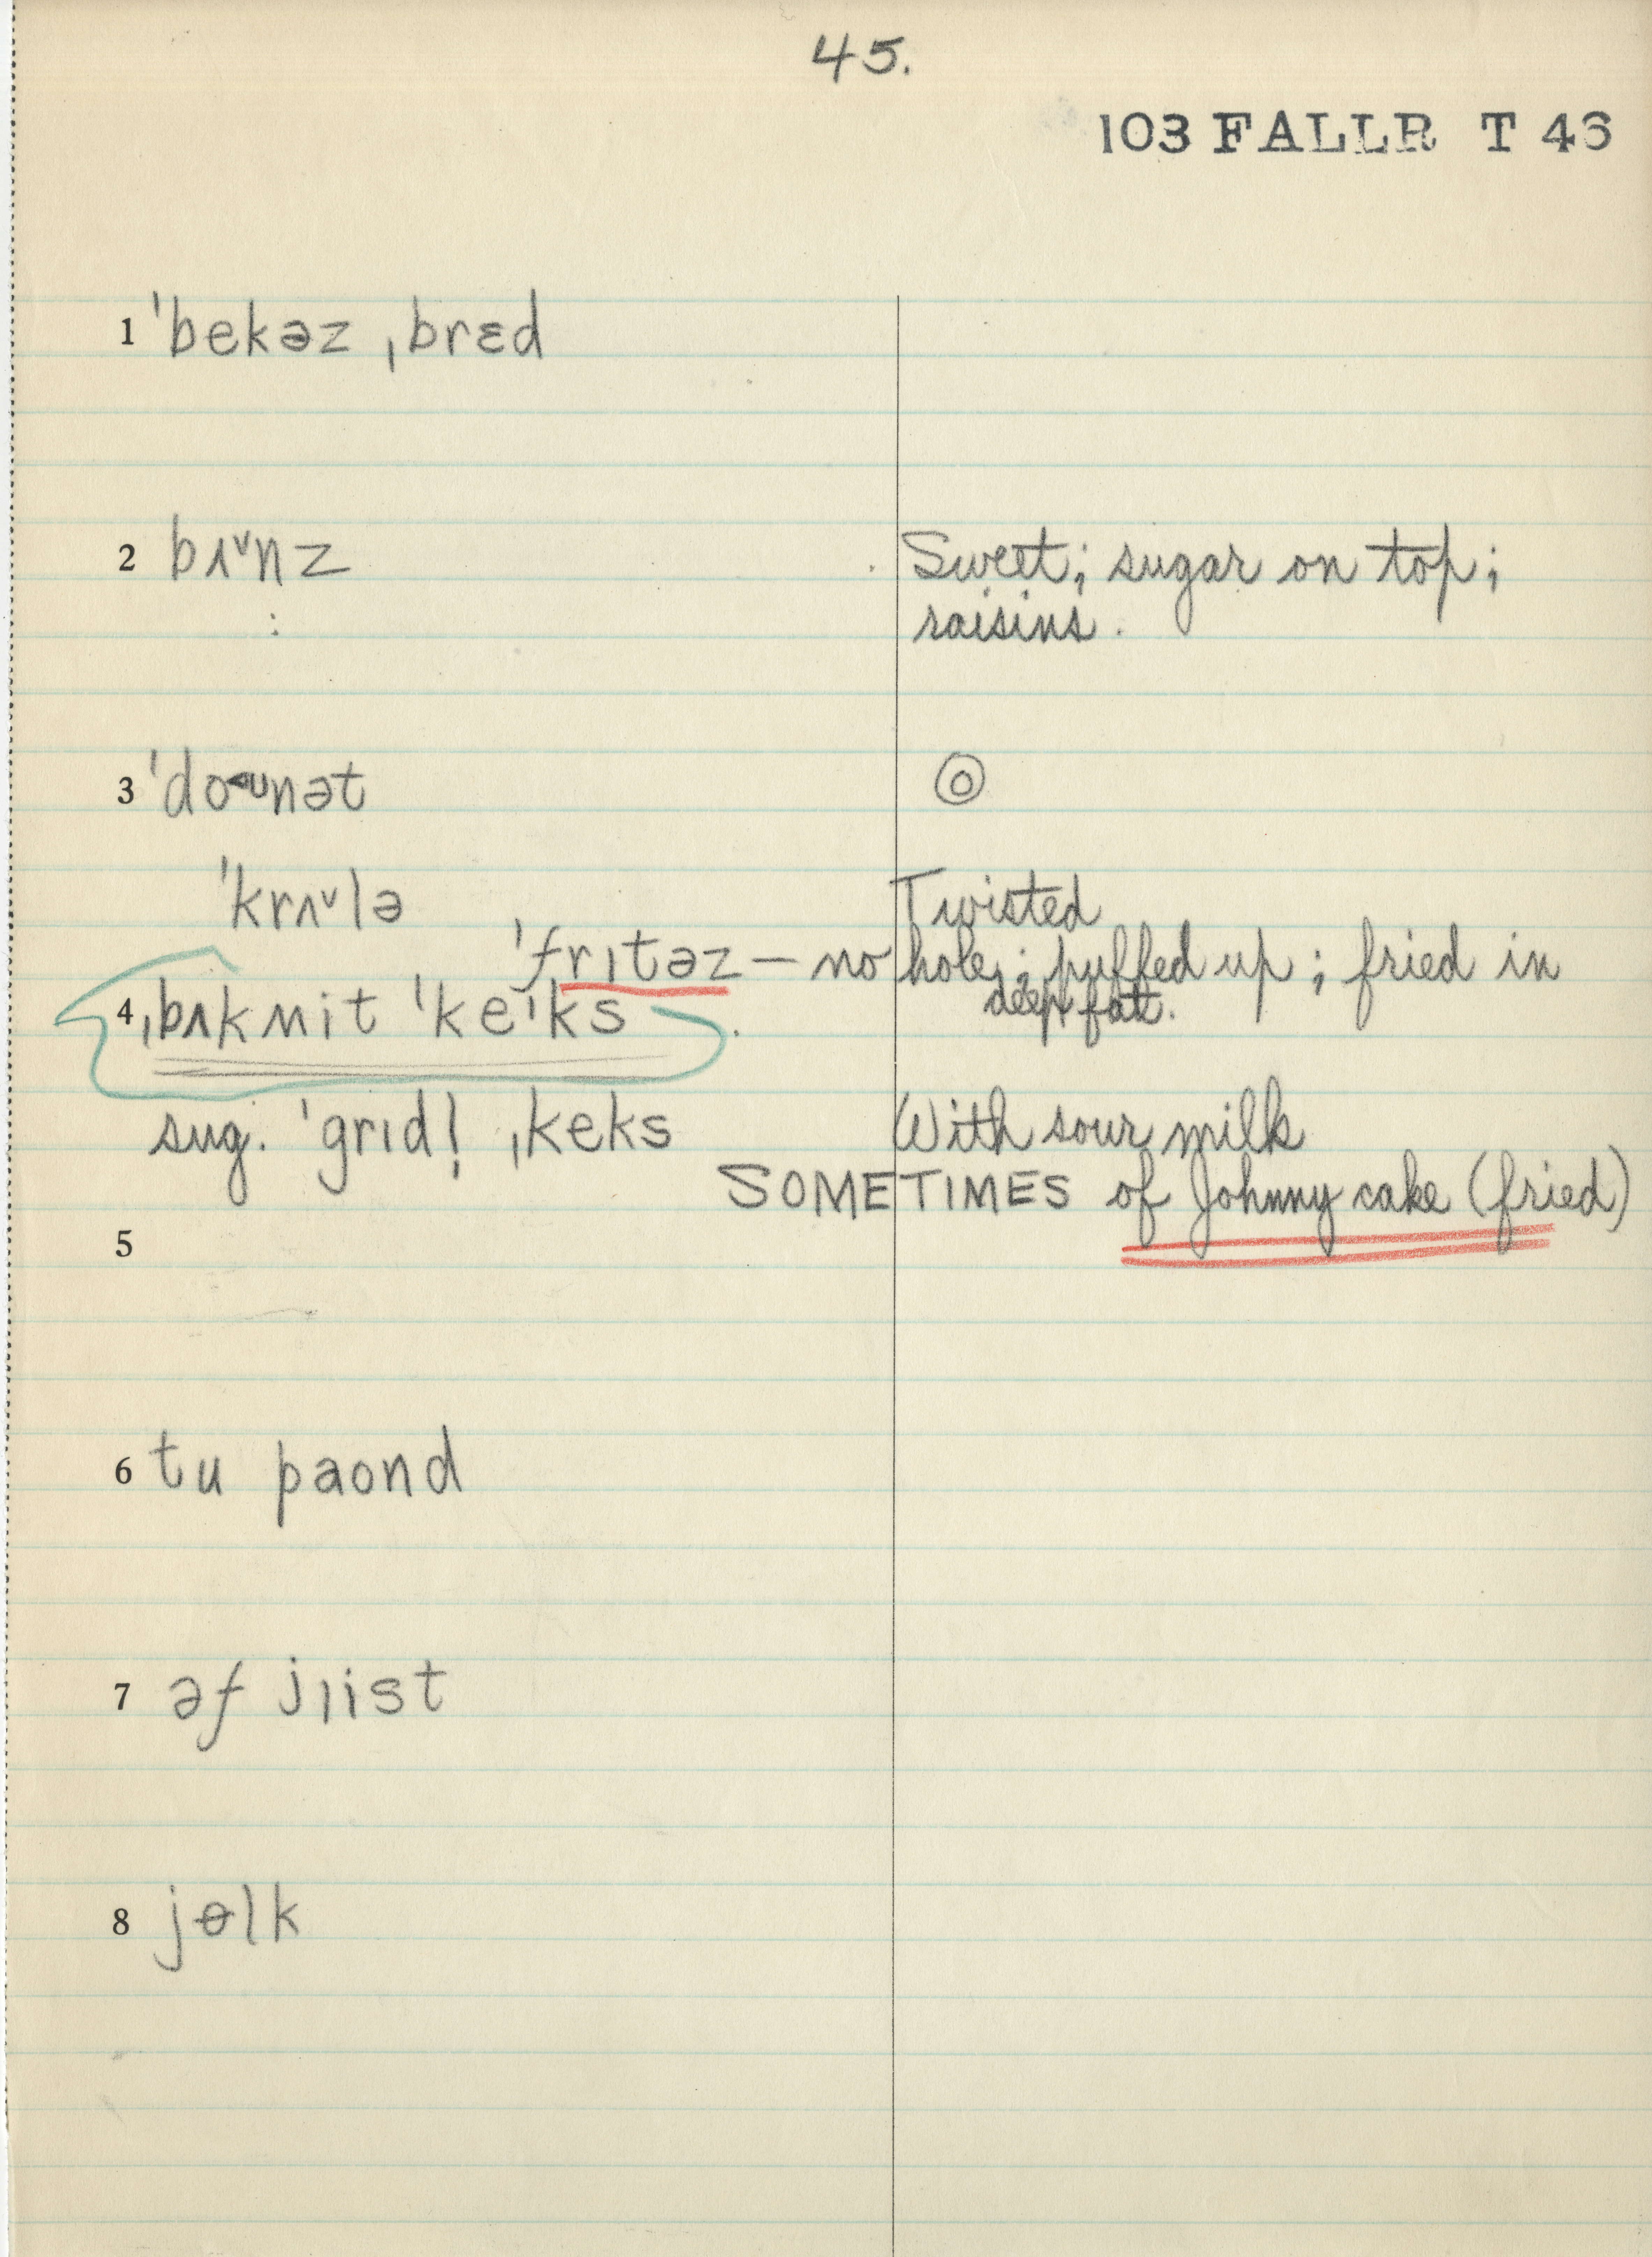 45.
103 FALLR T 46
1 ˈbekəz ˌbrɛd
2 bʌ˅nz Sweet; sugar on top;
raisins.
3 ˈdo˂ʊnət
ˈkrʌ˅lə Twisted
ˈfrɪtəz — no hole; puffed up; fried in
deep fat.
4 ˌbʌkʍit ˈkeˈks
sug. ˈgrɪdl̩ ˌkeks With sour milk
SOMETIMES of Johnny cake (fried)
5
6 tu paond
7 əf jiist
8 jɵlk